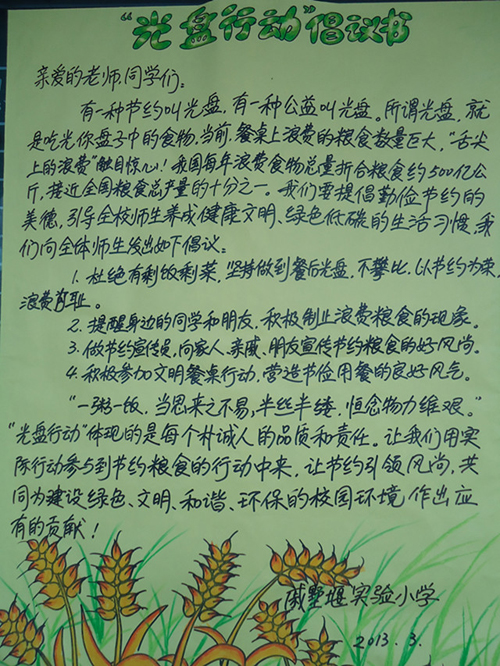 “光盘行动”倡议书
亲爱的老师、同学们：
有一种节约叫光盘，有一种公益叫光盘。所谓光盘，就
是吃光你盘子中的食物。当前，餐桌上浪费的粮食数量巨大，“舌尖
上的浪费”触目惊心！我国每年浪费食物总量折合粮食约500亿公
斤，接近全国粮食总产量的十分之一。我们要提倡勤俭节约的
美德，引导全校师生养成健康文明、绿色低碳的生活习惯，我
们向全体师生发出如下倡议：
1. 杜绝有剩饭剩菜，坚持做到餐后光盘，不攀比，以节约为荣，
浪费可耻。
2. 提醒身边的同学和朋友，积极制止浪费粮食的现象。
3. 做节约宣传员，向家人、亲戚、朋友宣传节约粮食的好风尚。
4. 积极参加文明餐桌行动，营造节俭用餐的良好风气。
“一粥一饭，当思来之不易，半丝半缕，恒念物力维艰。”
“光盘行动”体现的是每个朴诚人的品质和责任。让我们用实
际行动参与到节约粮食的行动中来，让节约引领风尚，共
同为建设绿色、文明、和谐、环保的校园环境作出应
有的贡献！
戚墅堰实验小学
2013.3.